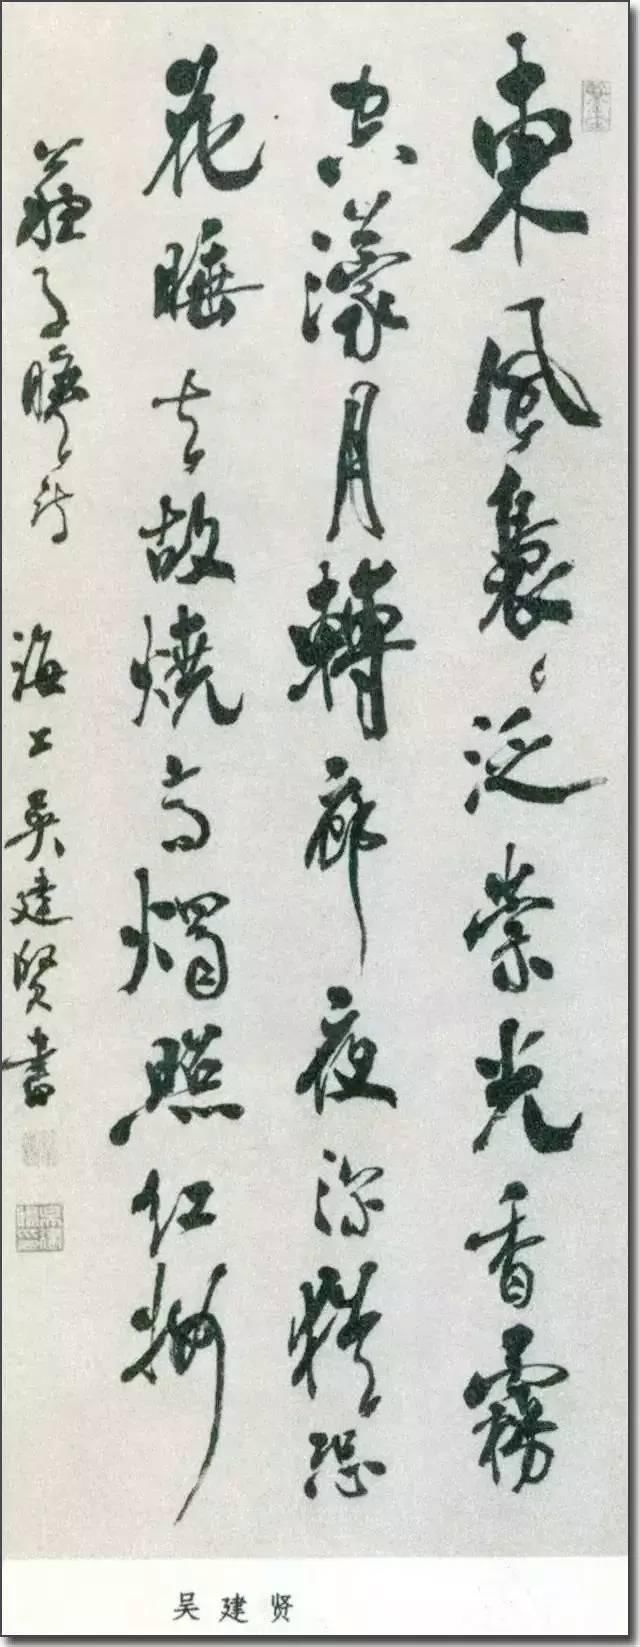 東風裊〻泛崇光香霧
空濛月轉廊夜深猶恐
花睡去故燒高燭照紅妝
蘇子瞻詩 海上吳建賢書
吴建贤